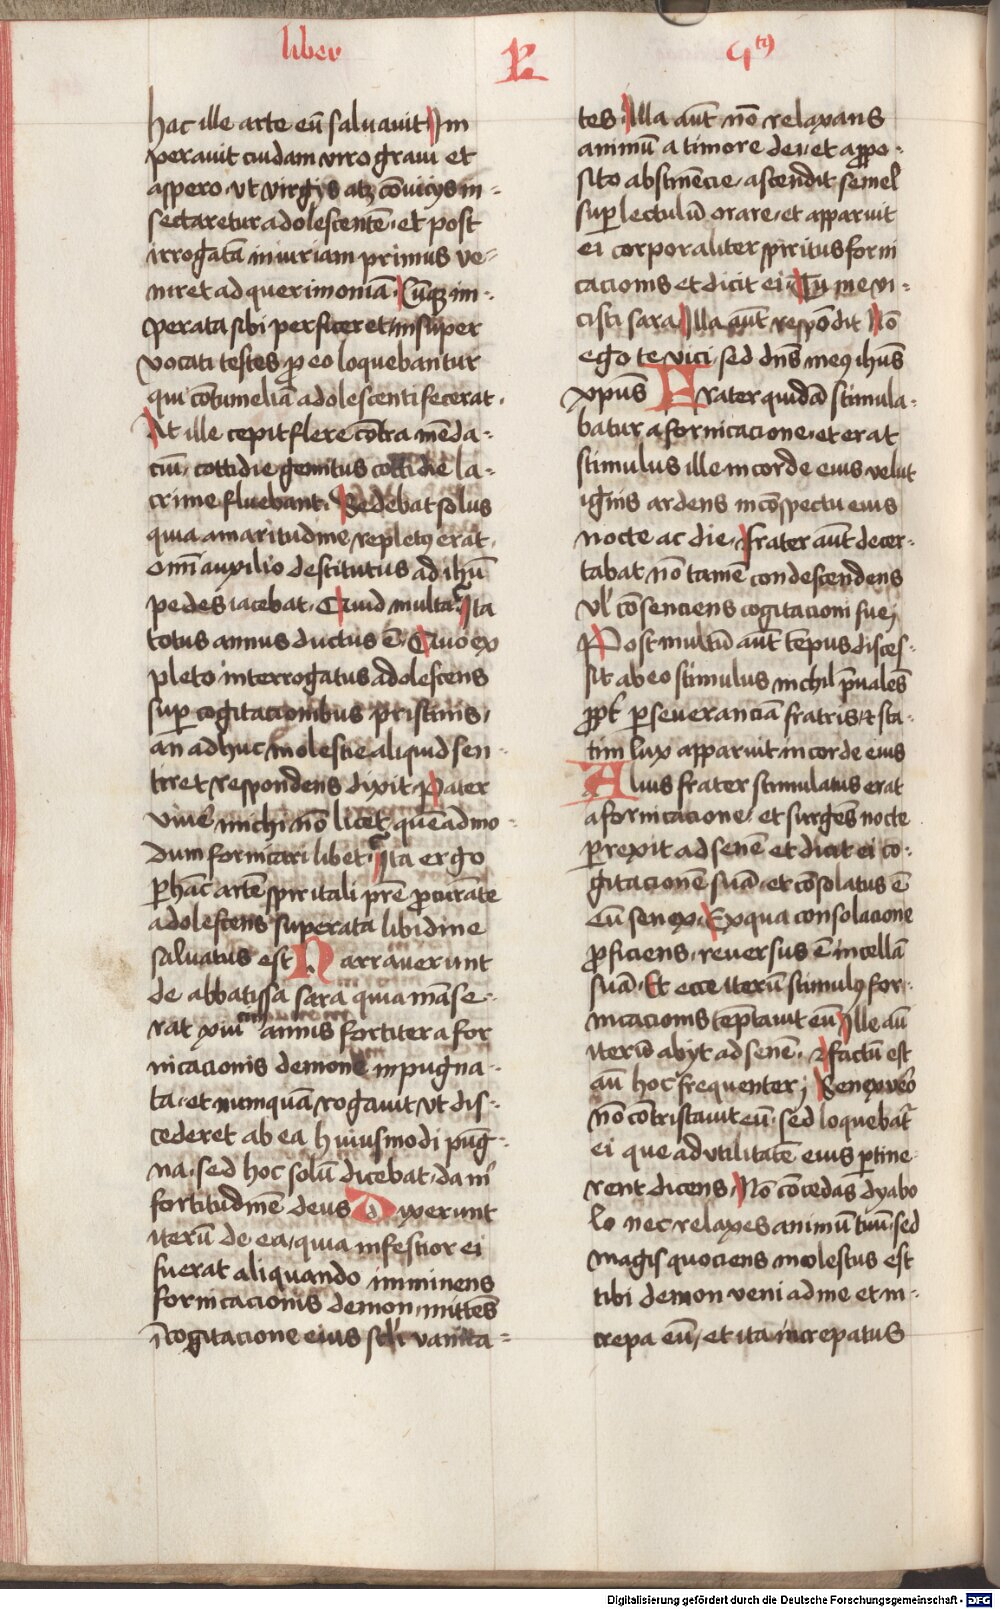 liber
R
4tus
hac ille arte eu᷑ saluauit Im
perauit cuidam viro graui et
aspero vt virgis atqʒ co᷑uicijs in-
sectaretur adolescente᷑ et post
irrogata᷑ iniuriam primus ve-
niret ad querimonia᷑ Cu᷑qʒ im-
perata sibi perficeret insuper
vocati testes p eo loquebantur
qui co᷑tumelia᷑ adolescenti fecerat
At ille cepit flere co᷑tra me᷑da-
ciu᷑ cottidie gemitus cottidie la-
crime fluebant Sedebat solus
quia amaritudine repletꝰ erat
omi᷑ auxilio destitutus ad ihu᷑
pedes iacebat Quid multa Ita
totus annus ductus e᷑ Quo ex
pleto interrogatus adolescens
sup cogitacionibus pristinis
an adhuc molestie aliquid sen-
tiret respondens dixit Pater
viue᷑ michi no᷑ licet que᷑admo-
dum fornicari libet Ita ergo
p ha᷑c arte᷑ spiritali pre᷑ pcura᷑te
adolescens superata libidine
saluatus est Narrauerunt
de abbatissa sara quia ma᷑se-
rat xiii cim annis fortiter a for
nicacionis demone inpugna-
ta et numqua᷑ rogauit vt dis-
cederet ab ea huiusmodi pug-
na sed hoc solu᷑ dicebat da m᷑
fortitudine᷑ deus Dixerunt
iteru᷑ de ea quia infestior ei
fuerat aliquando imminens
fornicacionis demon mittes᷑
i᷑ cogitacione eius scli᷑ vanita-
tes Illa aut᷑ no᷑ relaxans
animu᷑ a timore dei et appo-
sito abstine᷑cie ascendit semel
sup lectulu᷑ orare et apparuit
ei corporaliter spiritus forni
cacionis et dicit ei Tu me vi-
cisti sara Illa aut᷑ respo᷑dit No᷑
ego te vici sed dn᷑s meꝰ ihu᷑s
xpus᷑ Frater quida᷑ stimula-
batur a fornicacione et erat
stimulus ille in corde eius velut
ignis ardens in co᷑spectu eius
nocte ac die frater aut᷑ decer-
tabat no᷑ tame᷑ condescendens
vl᷑ co᷑senciens cogitacioni sue
Post multu᷑ aut᷑ te᷑pus disces-
sit ab eo stimulus nichil p᷑uales᷑
ppt᷑ pseuerancia᷑ fratris et sta-
tim lux apparuit in corde eius
Alius frater stimulatus erat
a fornicacione et surge᷑s nocte
prexit ad sene᷑ et dicit ei co-
gitacione᷑ sua᷑ et co᷑solatus e᷑
eu᷑ senex Ex qua consolacione
pficiens reuersus e᷑ in cella᷑
sua᷑ Et ecce iteru᷑ stimulꝰ for-
nicacionis te᷑ptauit eu᷑ Ille au᷑
iteru᷑ abijt ad sene᷑ et factu᷑ est
au᷑ hoc frequenter Senex vero᷑
no᷑ co᷑tristauit eu᷑ sed loquebat᷑
ei que ad vtilitate᷑ eius ptine
rent dicens No᷑ co᷑cedas dyabo
lo nec relaxes animu᷑ tuu᷑ sed
magis quociens molestus est
tibi demon veni ad me et in-
crepa eu᷑ et ita increpatus
Digitalisierung gefördert durch die Deutsche Forschungsgemeinschaft - DFG